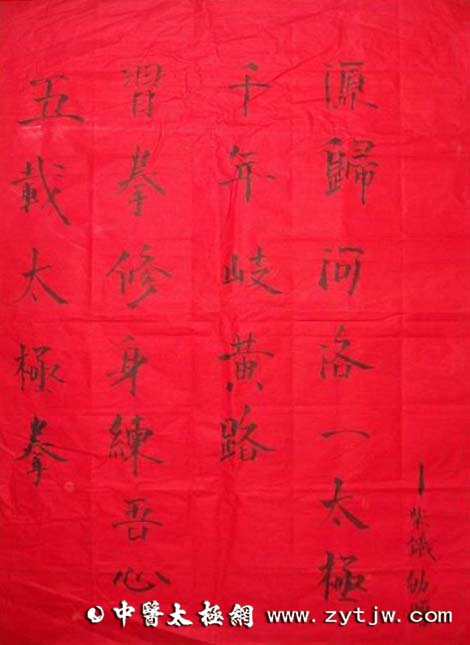 五載太極拳
習拳修身練吾心
千年岐黄路
源歸河洛一太極
柴鐵
中醫太極網 www.zytjw.com